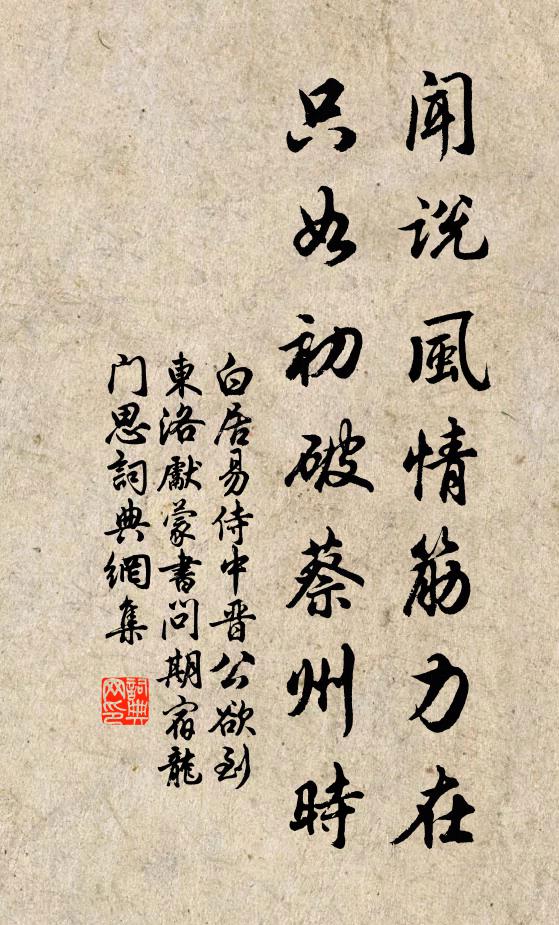 聞說風情筋力在
只如初破蔡州時
白居易侍中晋公欲到
東洛獻蒙書問期宿龍
门思詞典網集
詞典
网印